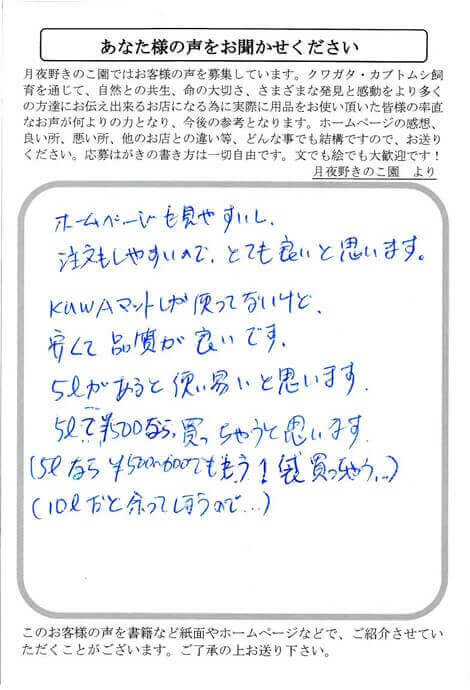 あなた様の声をお聞かせください
月夜野きのこ園ではお客様の声を募集しています。クワガタ・カブトムシ飼
育を通じて、自然との共生、命の大切さ、さまざまな発見と感動をより多く
の方達にお伝え出来るお店になる為に実際に用品をお使い頂いた皆様の率直
なお声が何よりの力となり、今後の参考となります。ホームページの感想、
良い所、悪い所、他のお店との違い等、どんな事でも結構ですので、お送り
ください。応募はがきの書き方は一切自由です。文でも絵でも大歓迎です！
月夜野きのこ園　より
ホームページも見やすいし、
注文もしやすいので、とても良いと思います。
KUWAマットしか使ってないけど、
安くて品質が良いです。
5ℓがあると使い易いと思います。
5ℓで¥500なら、買っちゃうと思います。
(5ℓなら¥500〜600でももう1袋買っちゃう…)
(10ℓだと余ってしまうので…)
このお客様の声を書籍など紙面やホームページなどで、ご紹介させてい
ただくことがございます。ご了承の上お送り下さい。